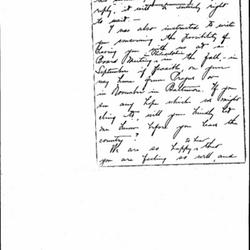 reply, it will be entirely right
to wait —
I was also instructed to write
you concerning the possibility of
having you with us at a
Board Meeting in the fall, in
September if possible, on your
way home from Prague or
in November in Baltimore. If you
see any hope which we might
cling to, will you kindly let
me know before you leave the
country?
We are so happy to hear that
you are feeling so well, and